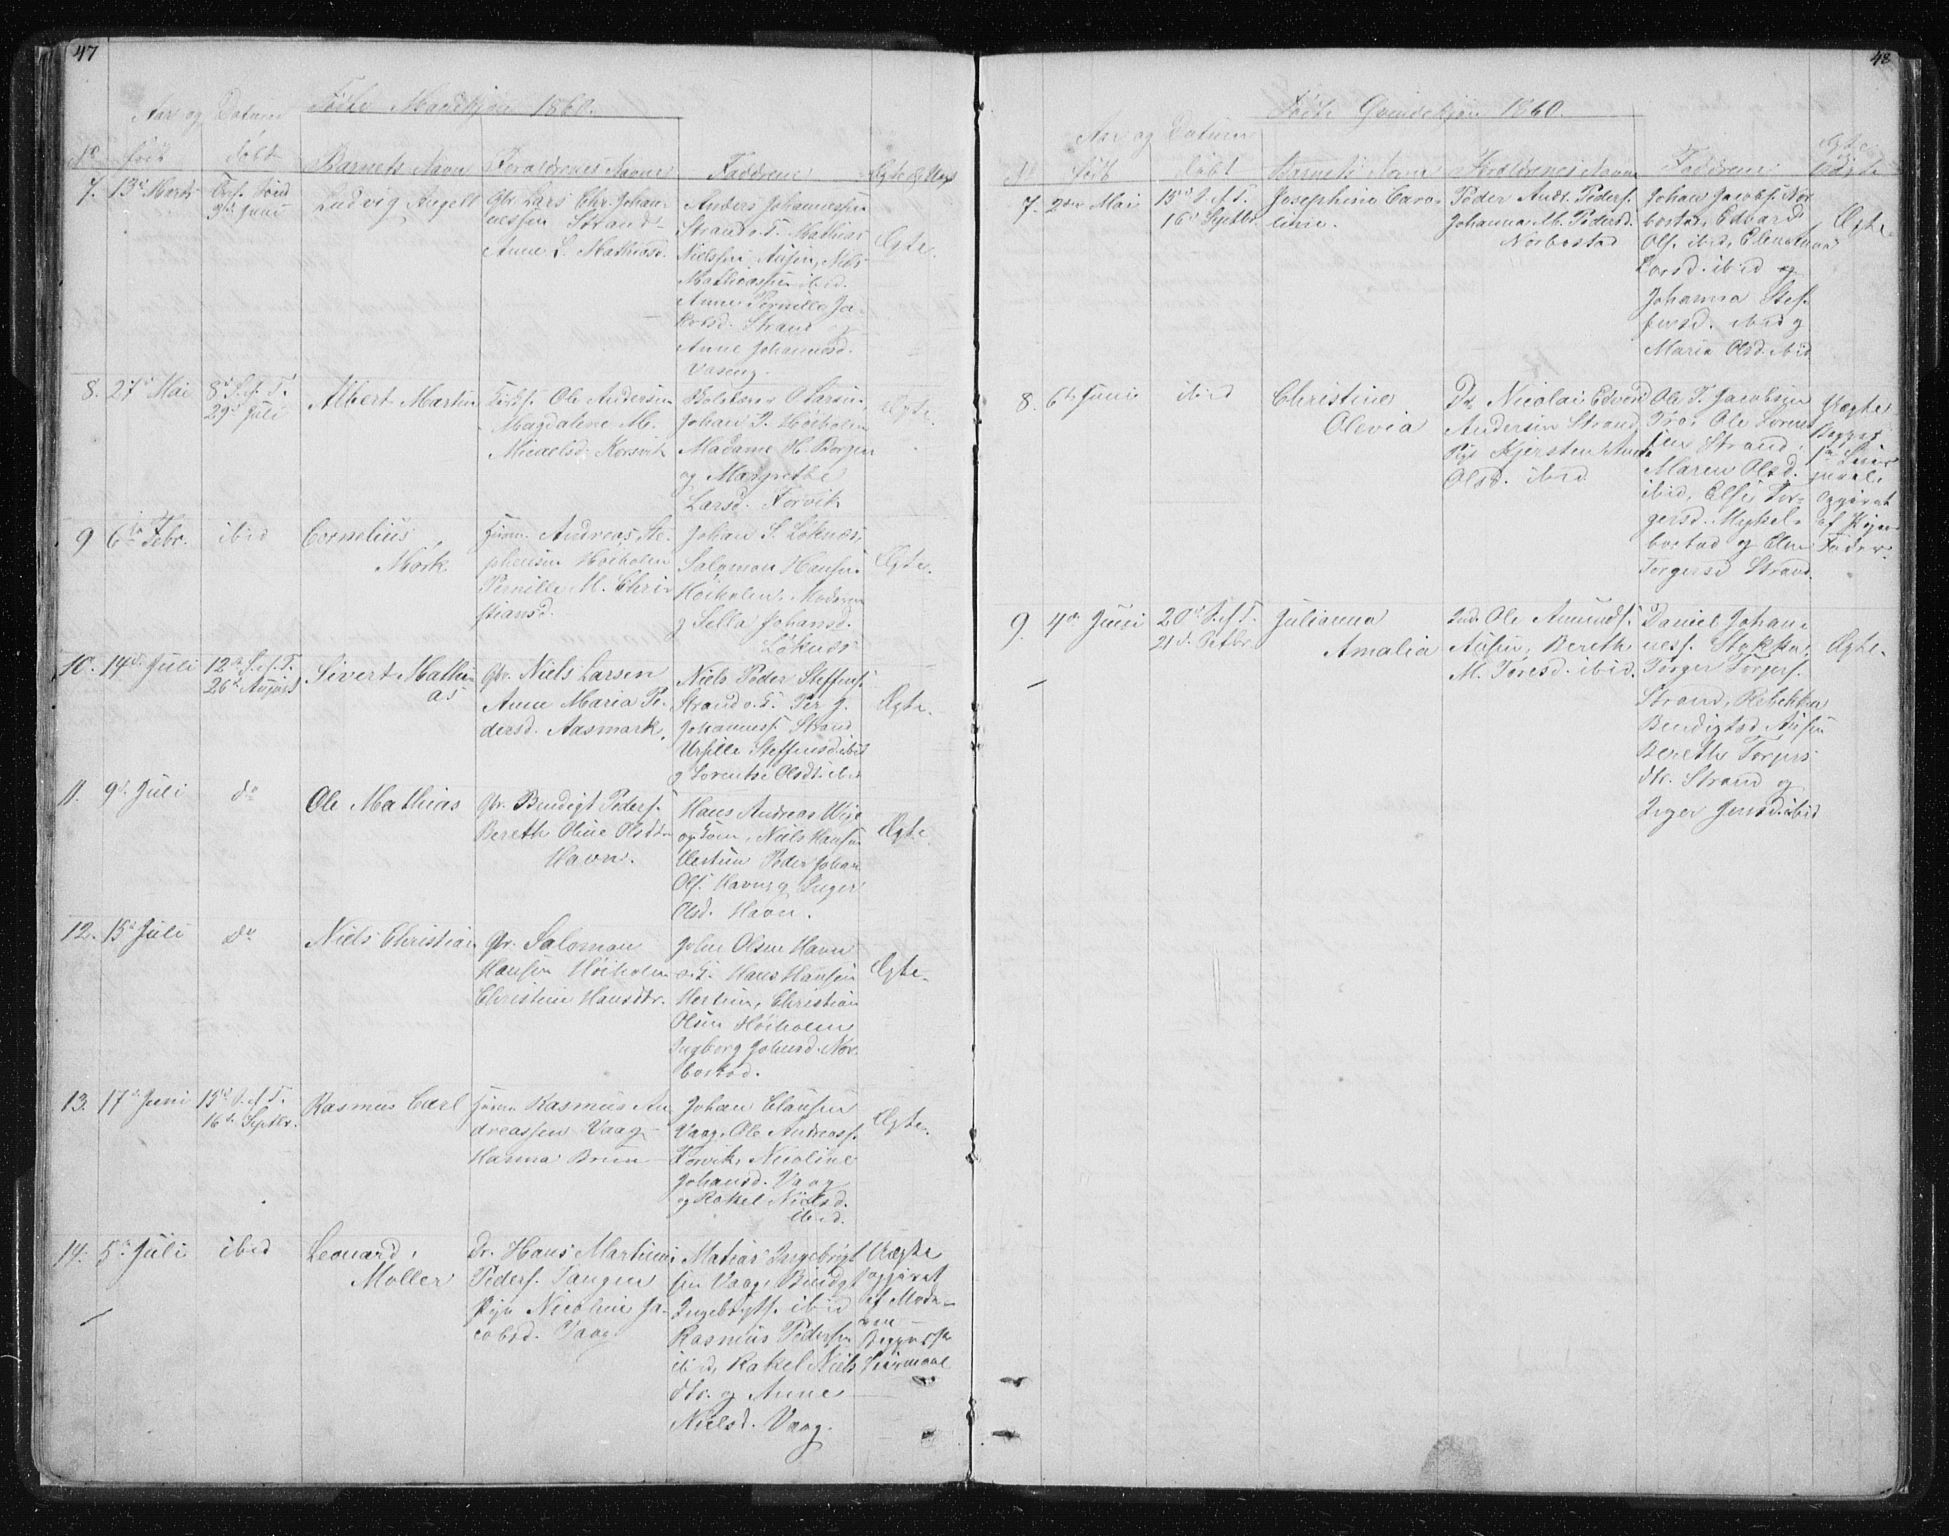 47
Fødte Mandkjøn 1860.
Aar og Datum
No født døbt Barnets Navn Foraldrenes Navne Faddrene Ægte &
7. 13de Marts
9de Juni
Ludvig Angell
Gbr. Lars Chr. Johan-
nessen Strand
Anne L. Mathiasd.
Anders Johannessen
Strand o. S. Mathias
Nielssen Ausen, Niels
Mathiassen ibid.
Anne Pernille Ja-
kobsd. Strand og
Anne Johannesd.
Vaseng.
Ægte.
8. 27de Mai
8de S. ef. T.
29de Juli
Albert Martin
Ole Andersen
Magdalene M.
Micaelsd. Korsvik
O Larsen,
Johan P. Høiholm
Madame H. Borgen
og Margrethe
Larsd. Torvik
Ægte.
9 6te Febr.
ibid
Cornelius
Mørk.
Huusm. Andreas Ste-
phensen Høiholm
Pernille M. Chri-
stiansd.
Johan S. Løknæs,
Salomon Hansen
Høiholm, Moderen
g Sella Johansd.
Løknæs
Ægte.
10. 14de Juli
12te S. ef. T.
26de August
Sivert Mathi-
as
Gbr. Niels Larsen
Anne Maria Pe-
dersd. Aasmark.
Niels Peder Steffens.
Strand o. S. Per J.
Johanness. Strand
Ursille Steffensd. ibid
g Lorentse Olsdt. ibid
Ægte.
11. 9de Juli
do
Ole Mathias
Gbr. Bendigt Peders.
Bereth Oline Olsdtr
Havn.
Hans Andreas Wige
og Søn, Niels Hansen
Peder Johan
Ols. Havn, g Inger
Olsd. Havn.
Ægte
12. 15de Juli
do
Niels Christian
Gbr. Salomon
Hansen Høiholm
Christine Hansdtr.
John Olsen Havn
o. S. Hans Hansen
Christian
Olsen Høiholm
Ingborg Johnsd. Nor-
bostad.
Ægte.
13. 17de Juni
15de S. ef. T.
16de Septbr.
Rasmus Carl
Huusm Rasmus An-
dreassen Vaag
Hanna Brun
Johan Clausen
Vaag, Ole Andreass.
Torvik, Nicoline
Johansd. Vaag
og Rakel Nielsd.
ibid.
Ægte.
14. 5te Juli
ibid
Leonard
Moller
Dr. Hans Martinus
Peders. Tangen
Pige Nicoline Ja-
cobsd. Vaag
Matias Ingebrigt-
sen Vaag, Bendigt
Ingebrigts. ibid
Rasmus Pedersen
ibid, Rakel Niels
dtr. g Anne
Nielsd. Vaag.
Uægte
opgivet
af Mode-
ren
Begges 1ste
Leiermaal
48
Fødte Qvindekjøn 1860.
Aar og Datum
No født døbt Barnets Navn Foraldrenes Navne Faddrene Ægte
7. 2den Mai
15de S. ef. T.
16de Septbr.
Josephine Caro-
line.
Peder Andr. Peders.
Johanna M. Pedersd.
Norbostad
Johan Jacobs. Nor-
bostad, Edvard
Ols. ibid, Elen Anna
Larsd. ibid og
Johanna Stef-
fensd. ibid g
Maria Olsd. ibid
Ægte
8. 6te Juni
ibid
Christine
Olevia
Dr. Nicolai Edvard
Andersen Strand
Pige Kjersten Anna
Olsd. ibid
Ole T. Jacobsen
Tro, Ole Loren-
sen Strand,
Maren Olsd.
ibid, Else Tor-
gersd. Mykel-
bostad g Elen
Torgersd Strand.
Uægte
Begges
1ste Leier-
maal.
Opgivet
af Pigens
Fader.
9. 4de Juni
20de S. ef. T.
21de Octbr.
Julianna
Amalia
Ind. Ole Amunds.
Ausen, Bereth
M. Toresd. ibid.
Daniel Johan-
ness. Stokka,
Torger Torgers.
Strand, Rebekka
Bendigtsd. Ausen
Berethe Torgers
dtr. Strand og
Inger Jensd. ibid
Ægte.